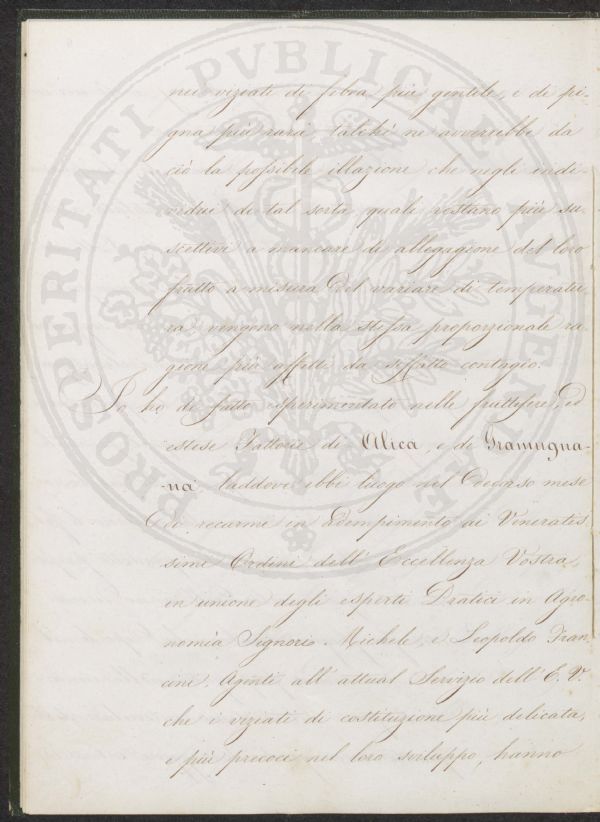 PROSPERITATI PVBLICAE AVGENDAE
nei viziati di fibra più gentile, e di pi-
gna più rara, talchè ne avverebbe da
ciò la possibile illazione che negli indi-
vidui di tal sorta, quali restano più su-
scettivi a mancare di allegagione del loro
frutto a misura del variare di temperatu-
ra vengono nella stessa proporzionale ra-
gione più affetti da siffatto contagio.
Io ho di fatto esperimentato nelle fruttifere, ed
estese Fattorie di Alica, e di Gramugna-
-na laddove ebbi luogo nel Decorso mese
di recarmi in adempimento ai Veneratis
simi Ordini dell' Eccellenza Vostra,
in unione degli esperti Pratici in Agro-
nomia Signori Michele, e Leopoldo Fran-
cini, Agenti all' attual Servizio dell' E. V.
che i viziati di costituzione più delicata,
e più precoci nel loro sviluppo, hanno